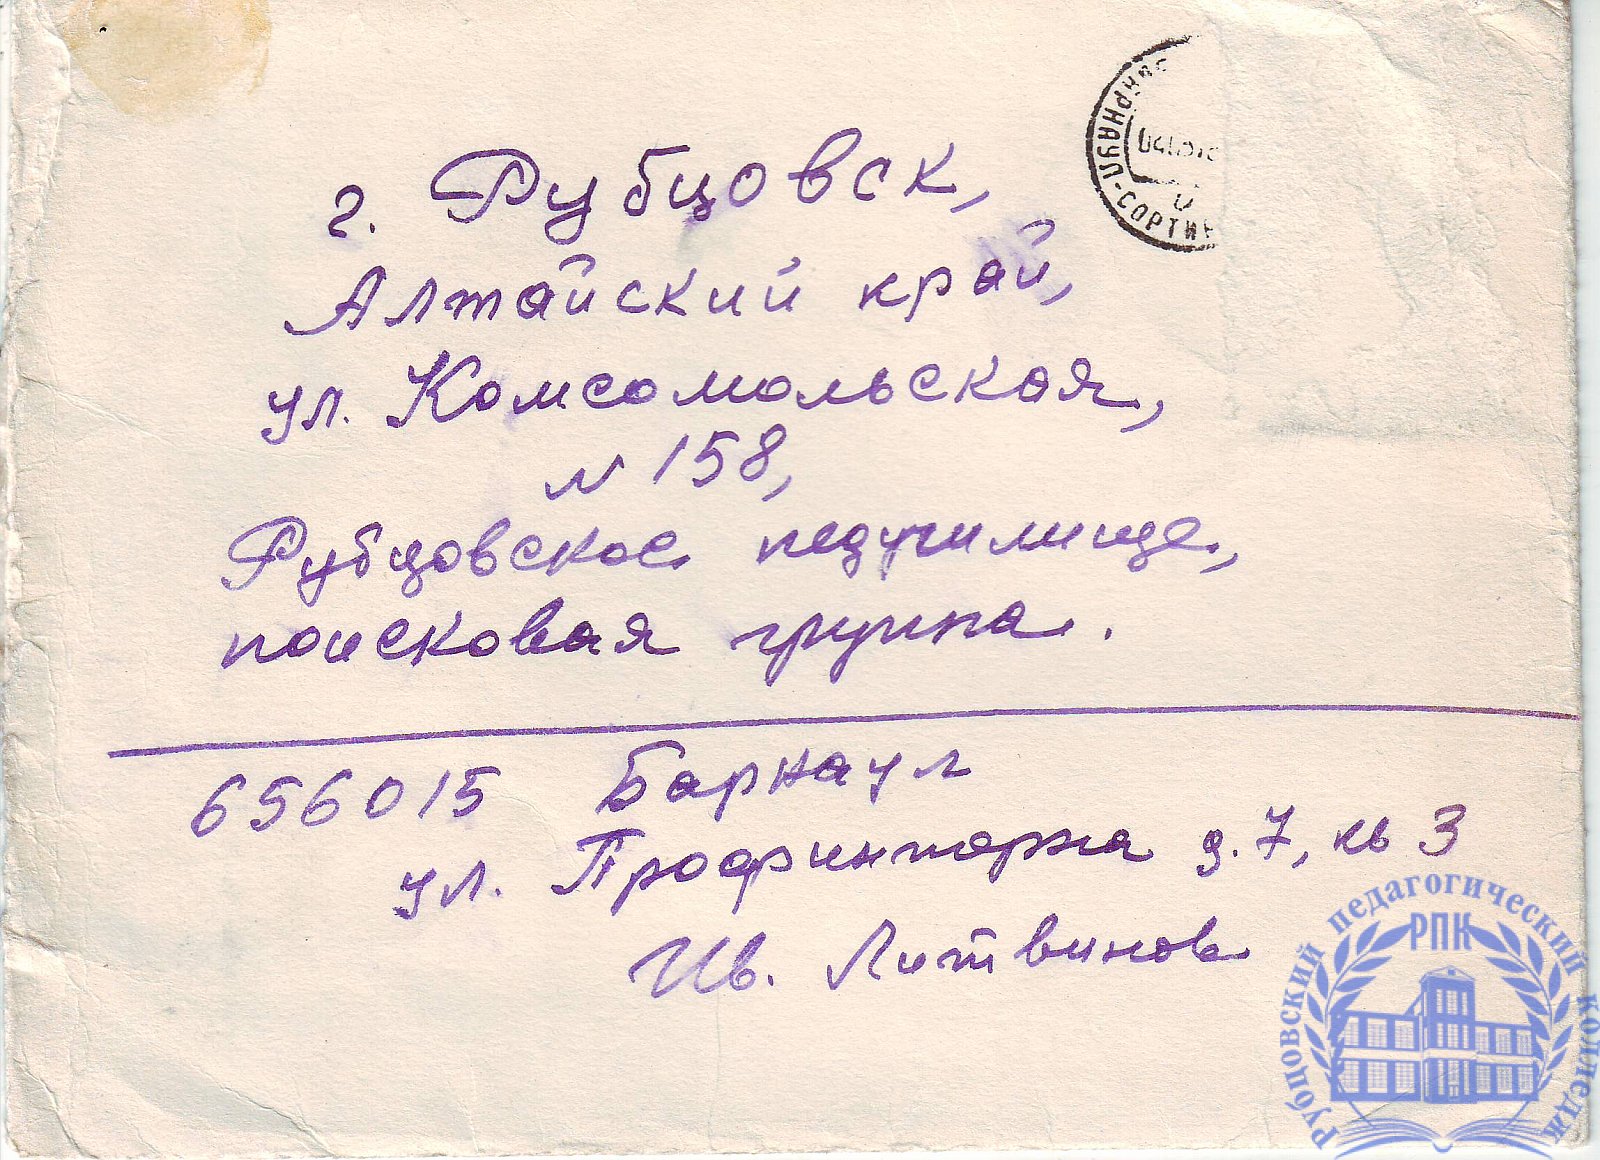 г. Рубцовск,
Алтайский край,
ул. Комсомольская,
N 158,
Рубцовское педучилище,
поисковая группа.
656015 Барнаул
ул. Профинтерна д. 7, кв 3
Ив. Литвинов
БАРНАУЛ-СОРТИ
Рубцовский педагогический колледж
РПК